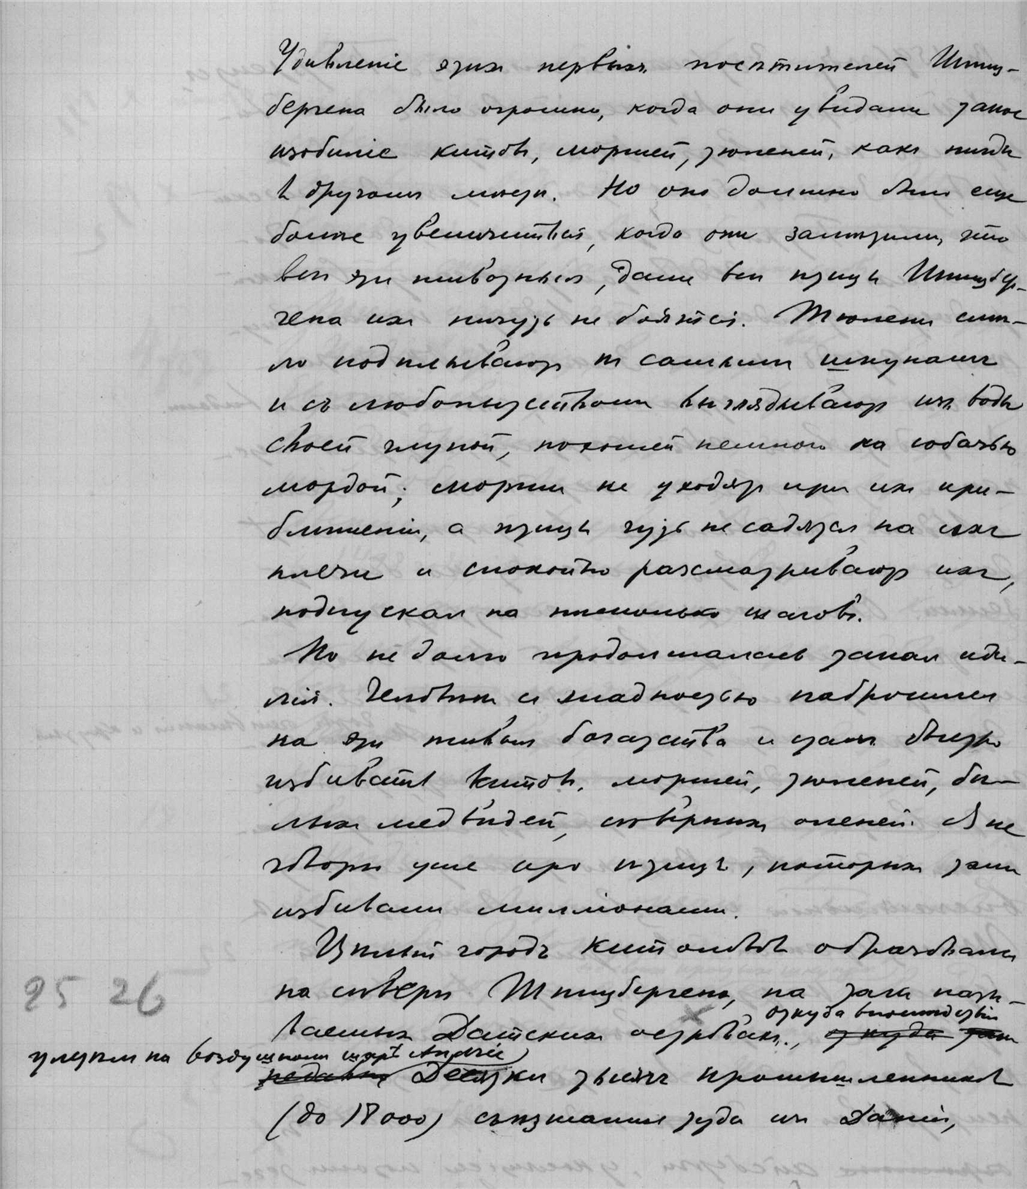 Удивленіе этих первых посѣтителей Шпиц-
бергена было огромно, когда они увидали такое
изобиліе китов, моржей, тюленей, как нигдѣ
в другом мѣстѣ. Но оно должно было еще
болѣе увеличиться, когда они замѣтили, что
всѣ эти животныя, даже всѣ птицы Шпицбер-
гена их ничуть не боятся. Тюлени смѣ-
ло подплывают к самым шкунам
и съ любопытством выглядывают из воды
своей глупой, похожей немного на собачью
мордой; моржи не уходят при их при-
ближеніи, а птицы чуть не садятся на их
плечи и спокойно разсматривают их,
подпуская на нѣсколько шагов.
Но не долго продолжалась такая иди-
лія. Человѣк с жадностью набросился
на эти живыя богатства и стал быстро
избивать китов, моржей, тюленей, бѣ-
лых медвѣдей, сѣверных оленей. Я не
говорю уже про птицъ, которых там
избивали милліонами.
Цѣлый городъ китоловов образовался
на сѣверѣ Шпицбергена, на так назы-
ваемых Датских островах, откуда впослѣдствіи
улетѣл на воздушном шарѣ Андрée
Десятки тысяч промышленников
(до 18000) съѣзжались туда из Даніи,
25 26